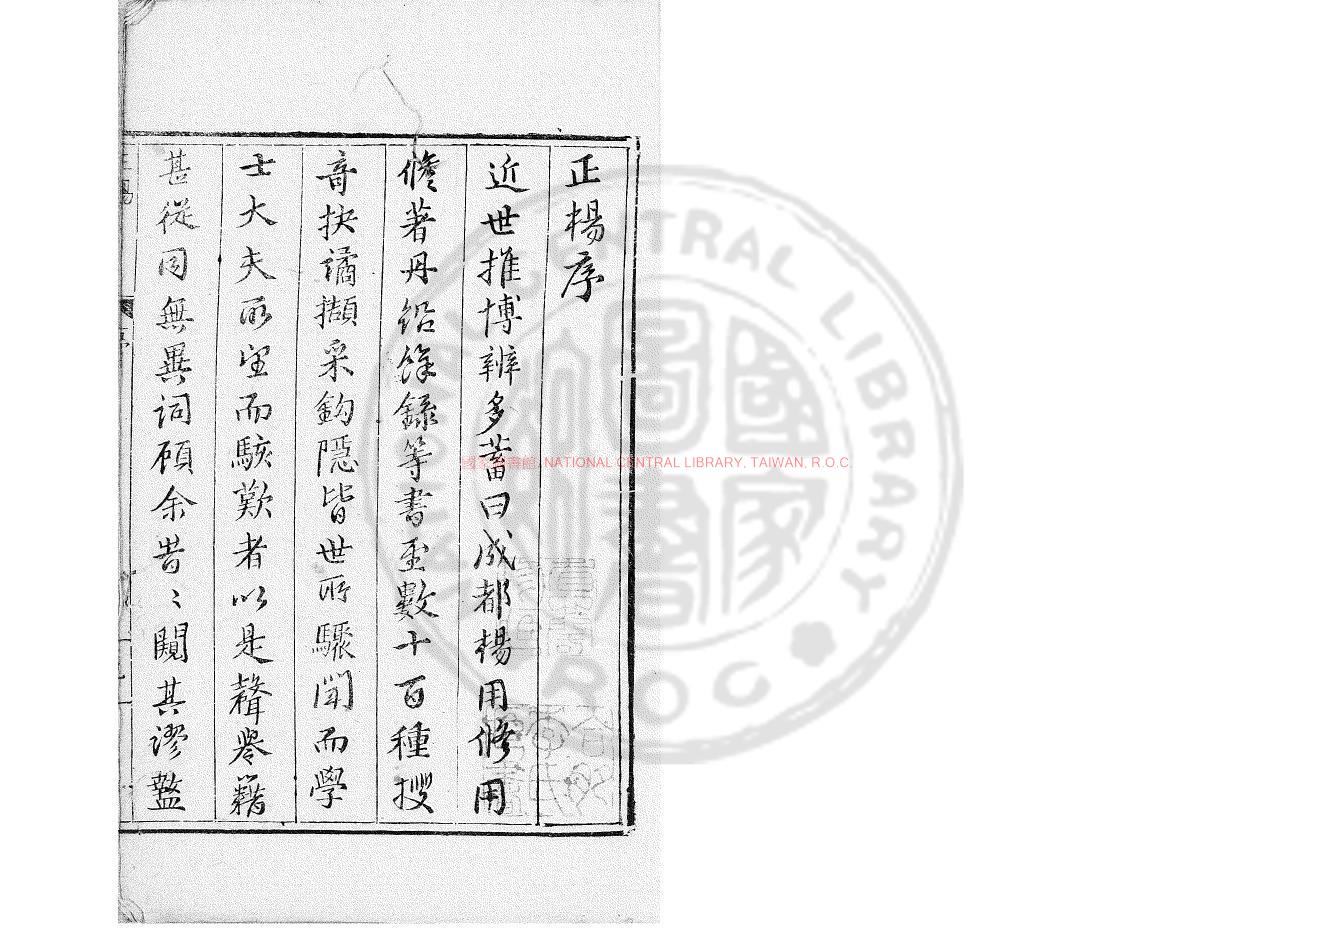 正楊序
近世推博辨多蓄曰成都楊用修用
修著丹鉛餘錄等書至數十百種搜
奇抉譎擷采鉤隱皆世所驟聞而學
士大夫所望而駭歎者以是聲譽籍
甚從同無異詞顧余昔〻闚其謬盭
國家圖書館, NATIONAL CENTRAL LIBRARY, TAIWAN, R.O.C.